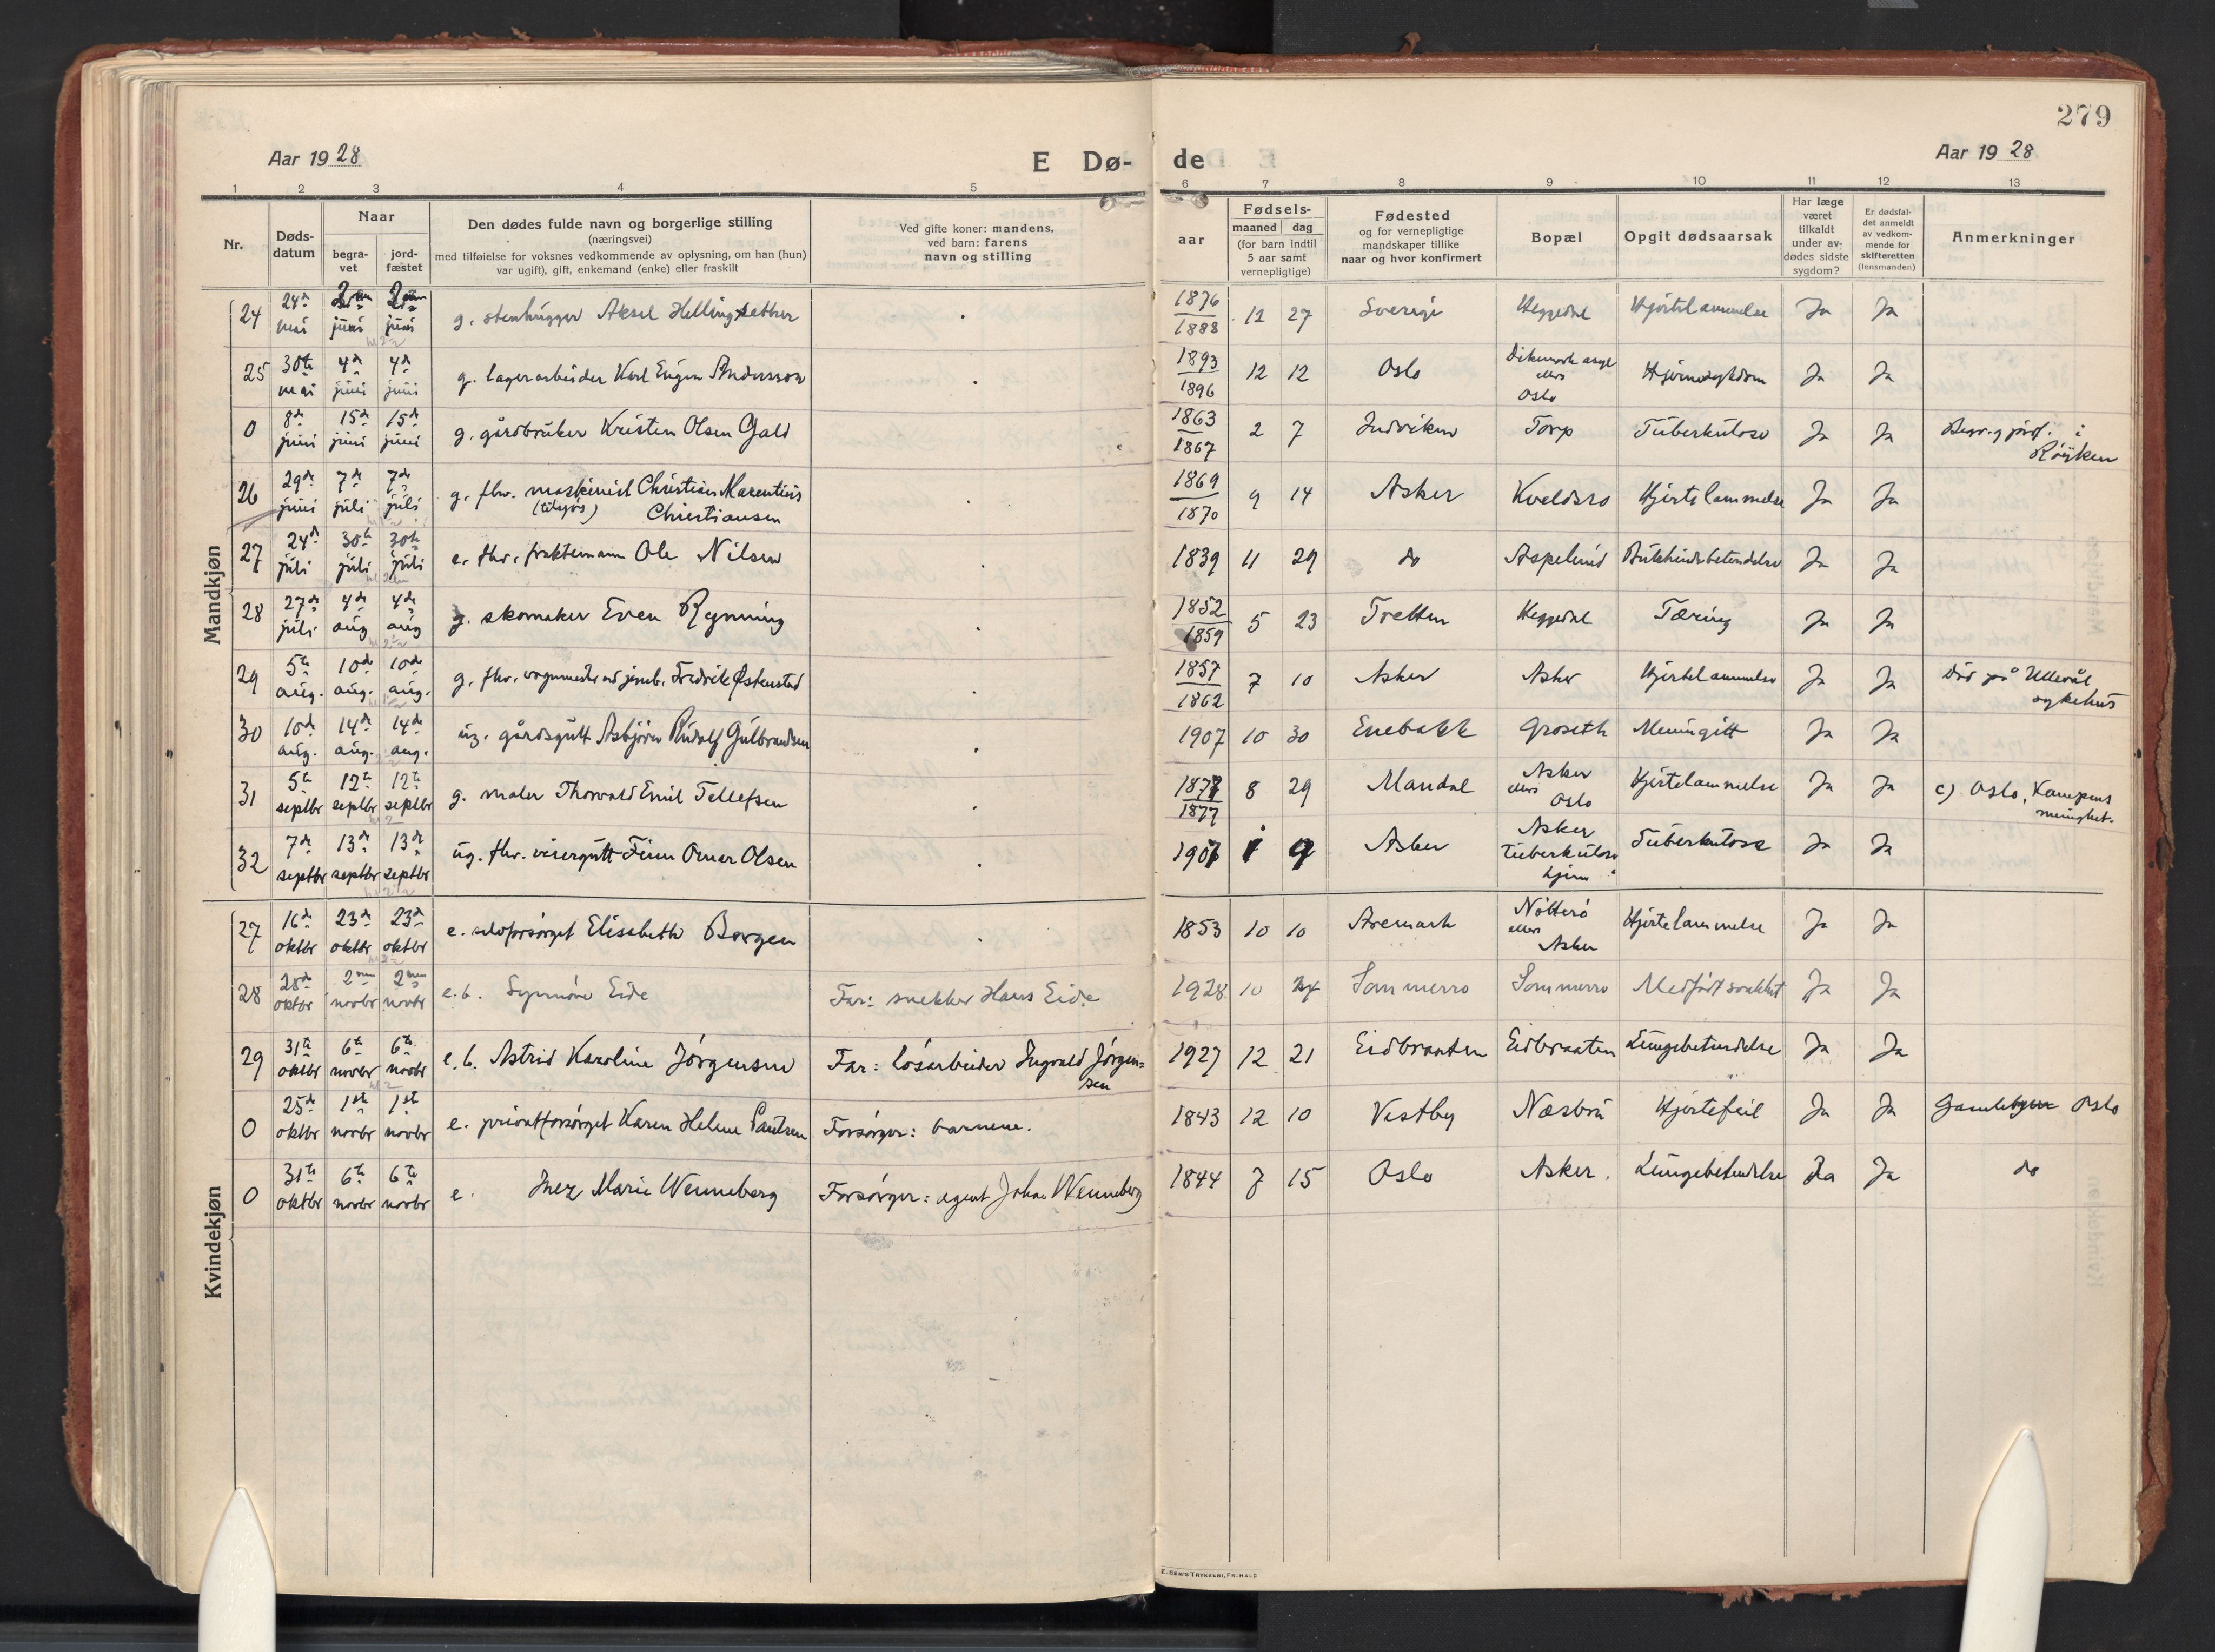 279
Aar 1928 E Dø- de Aar 1928
1 2 3 4 5 6 7 8 9 10 11 12 13
Nr.
Døds-
datum
Naar
begra-
vet
jord-
fæstet
Den dødes fulde navn og borgerlige stilling
(næringsvei)
med tilføielse for voksnes vedkommende av oplysning, om han (hun)
var ugift), gift, enkemand (enke) eller fraskilt
Ved gifte koner: mandens,
ved barn: farens
navn og stilling
Fødsels-
aar
maaned dag
(for barn indtil
5 aar samt
vernepligtige)
Fødested
og for vernepligtige
mandskaper tillike
naar og hvor konfirmert
Bopæl
Opgit dødsaarsak
Har læge
været
tilkaldt
under av-
dødes sidste
sygdom?
Er dødsfal-
det anmeldt
av vedkom-
mende for
skifteretten
(lensmanden)
Anmerkninger
Mandkjøn
24 24de mai juni juni g. stenhugger Aksel 1876/1888 12 27 Sverige Heggedal Hjertelammelse Ja Ja
25 30te mai 4de juni 4de juni g. lagerarbeider Karl Eugen Andersson 1893/1896 12 12 Oslo Dikemark asyl
ellers
Oslo Hjernesykdom Ja Ja
0 8de juni 15de juni 15de juni g. gårdbruker Kristen Olsen Gald 1863/1867 2 7 Indviken Torp Tuberkulose Ja Ja i
Røyken
26 29de juni 7de juli 7de juli g. fhv. maskinist Christian Marentius
(tilsjøs) Christiansen 1869/1870 9 14 Asker Kveldsro Hjertelammelse Ja Ja
27 24de juli 30te juli 30te juli e. fhv. fraktemann Ole Nilsen 1839 11 29 do Aspelund Bukhindebetendelse Ja Ja
28 27de juli 4de aug 4de aug g. skomaker Even Rynning 1852/1859 5 23 Tretten Heggedal Tæring Ja Ja
29 5te aug. 10de aug. 10de aug. g. fhv. vognmester ved jernb. Fredrik Østenstad 1857/1862 7 10 Asker Asker Hjertelammelse Ja Ja Død på Ullevål
sykehus
30 10de aug. 14de aug. 14de aug. ug. gårdsgutt Asbjørn Rudolf Gulbrandsen 1907 10 30 Enebakk Groseth Meningitt Ja Ja
31 5te septbr 12te septbr 12te septbr g. maler Thorvald Emil Tellefsen 1877/1877 8 29 Mandal Asker
ellers
Oslo Hjertelammelse Ja Ja c) Oslo, Kampens
menighet.
32 7de septbr 13de septbr 13de septbr ug. fhv. visergutt Finn Omar Olsen 1907 1 9 Asker Asker
tuberkulose
hjem Tuberkulose Ja Ja
Kvindekjøn
27 16de oktbr 23de oktbr 23de oktbr e. selvforsørget Elisabeth Borgen 1853 10 10 Aremark Nøtterø
ellers
Asker Hjertelammelse Ja Ja
28 28de oktbr 2nen novbr 2nen novbr e.b. Synnøve Eide Far: snekker Hans Eide 1928 10 Sommerro Sommerro Medfødt svakhet Ja Ja
29 31te oktbr 6te novbr 6te novbr e.b. Astrid Karoline Jørgensen Far: løsarbeider Ingvald Jørgen-
sen 1927 12 21 Eidbraaten Eidbraaten Lungebetendelse Ja Ja
0 25de oktbr 1ste novbr 1ste novbr e. privatforsørget Karen Helene Paulsen Forsørger: barnene. 1843 12 10 Vestby Næsbru Hjertefeil Ja Ja Gamlebyen Oslo
0 31te oktbr 6te novbr 6te novbr e. Inez Marie Wenneberg Forsørger: agent Johan Wenneberg 1844 7 15 Oslo Asker. Lungebetendelse Ja Ja do